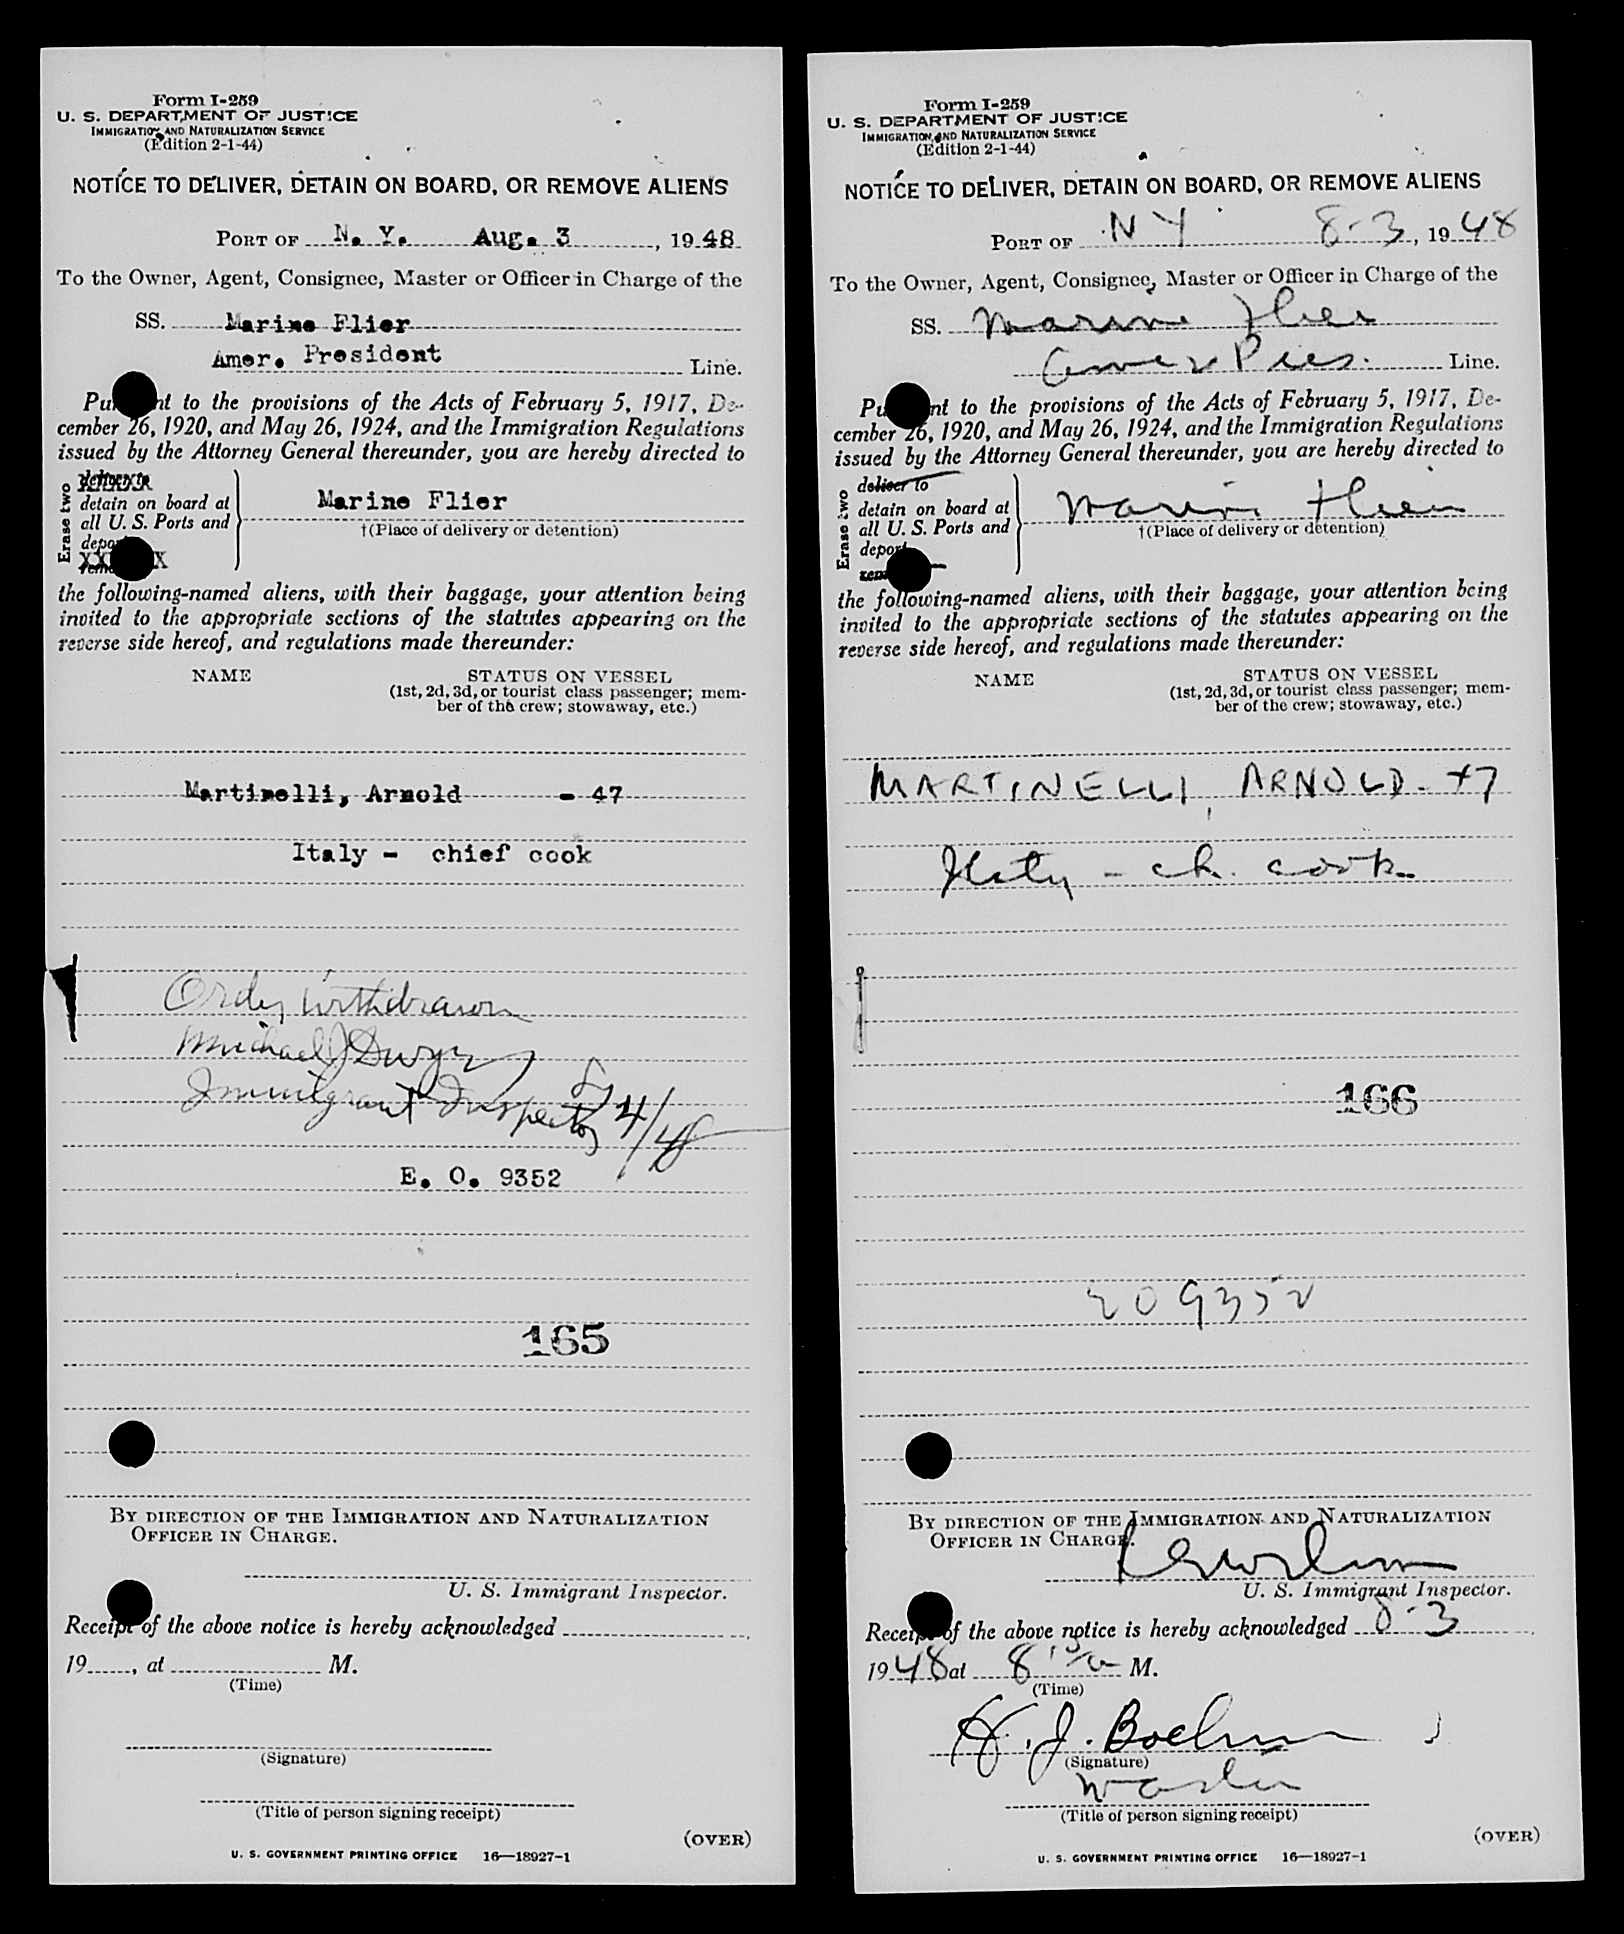 Form I-259
U. S. DEPARTMENT OF JUSTICE
IMMIGRATION AND NATURALIZATION SERVICE
(Edition 2-1-44)
NOTICE TO DELIVER, DETAIN ON BOARD, OR REMOVE ALIENS
PORT OF N. Y. Aug. 3, 1948
To the Owner, Agent, Consignee, Master or Officer in Charge of the
SS. Marine Flier
Amer. President Line.
Pu nt to the provisions of the Acts of February 5, 1917, De-
cember 26, 1920, and May 26, 1924, and the Immigration Regulations
issued by the Attorney General thereunder, you are hereby directed to
Erase two
deliver to
detain on board at
all U. S. Ports and
depo
Marine Flier
†(Place of delivery or detention)
the following-named aliens, with their baggage, your attention being
invited to the appropriate sections of the statutes appearing on the
reverse side hereof, and regulations made thereunder:
NAME STATUS ON VESSEL
(1st, 2d, 3d, or tourist class passenger; mem-
ber of the crew; stowaway, etc.)
Martinelli, Arnold - 47
Italy - chief cook
Order Withdrawn
Michael J Dwyer
Immigrant Inspector 8/4/48
E. O. 9352
165
BY DIRECTION OF THE IMMIGRATION AND NATURALIZATION
OFFICER IN CHARGE.
U. S. Immigrant Inspector.
Receipt of the above notice is hereby acknowledged
19, at M.
(Time)
(Signature)
(Title of person signing receipt)
(OVER)
U. S. GOVERNMENT PRINTING OFFICE 16—18927-1
Form I-259
U. S. DEPARTMENT OF JUSTICE
IMMIGRATION AND NATURALIZATION SERVICE
(Edition 2-1-44)
NOTICE TO DELIVER, DETAIN ON BOARD, OR REMOVE ALIENS
PORT OF N Y 8-3, 1948
To the Owner, Agent, Consignee, Master or Officer in Charge of the
SS. Marine Flier
Amer Pres. Line.
Pu nt to the provisions of the Acts of February 5, 1917, De-
cember 26, 1920, and May 26, 1924, and the Immigration Regulations
issued by the Attorney General thereunder, you are hereby directed to
Erase two
deliver to
detain on board at
all U. S. Ports and
deport
Marine Flier
†(Place of delivery or detention)
the following-named aliens, with their baggage, your attention being
invited to the appropriate sections of the statutes appearing on the
reverse side hereof, and regulations made thereunder:
NAME STATUS ON VESSEL
(1st, 2d, 3d, or tourist class passenger; mem-
ber of the crew; stowaway, etc.)
MARTINELLI, ARNOLD - 47
Italy - ch. cook
166
EO 9352
BY DIRECTION OF THE IMMIGRATION AND NATURALIZATION
OFFICER IN CHARGE.
U. S. Immigrant Inspector.
Receipt of the above notice is hereby acknowledged 8-3
1948 at 8 15/a M.
(Time)
(Signature)
Master
(Title of person signing receipt)
(OVER)
U. S. GOVERNMENT PRINTING OFFICE 16—18927-1